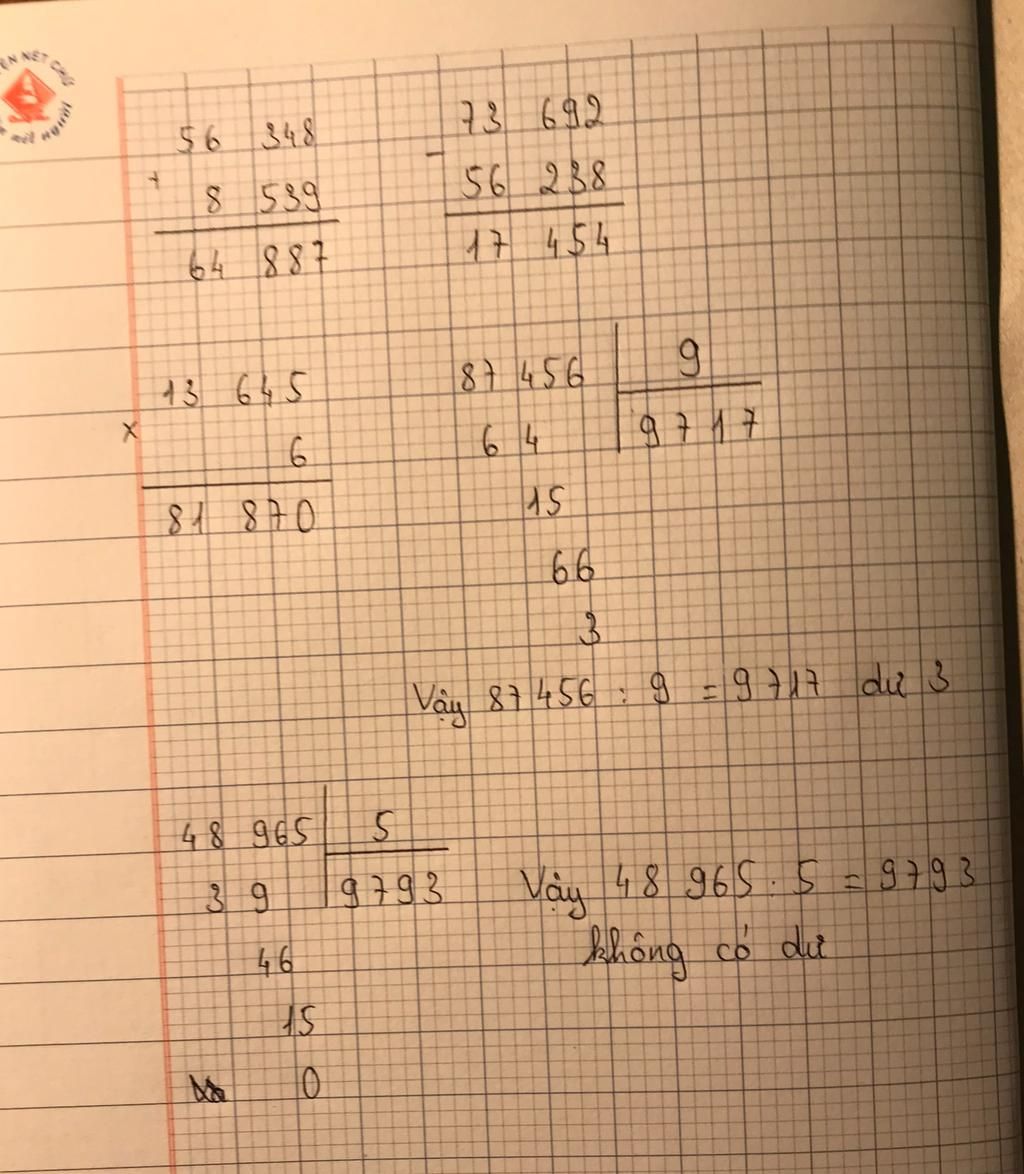 56 348
+
8 539
64 887
73 692
-
56 238
17 454
13 645
x
6
81 870
87 456 9
64 9717
15
66
3
Vậy 87 456 : 9 = 9717 dư 3
48 965 5
3 9 9793
46
15
0
Vậy 48 965 : 5 = 9793
không có dư